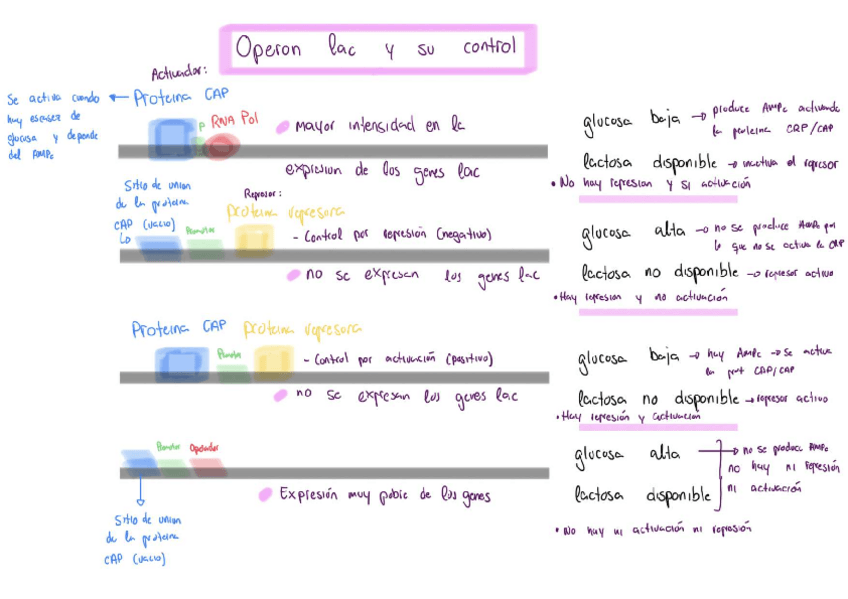 Operon lac y su control
Activador:
Se activa cuando
hay escasez de
glucosa y depende
del AMPc
Proteina CAP
P RNA Pol
mayor intensidad en la
expresion de los genes lac
glucosa baja → produce AMPc activando
la proteina CRP/CAP
lactosa disponible → inactiva el represor
• No hay represion y si activación
Sitio de union
de la proteina
CAP (vacio)
Promotor
Represor:
Proteina represora
- Control por represión (negativo)
no se expresan los genes lac
glucosa alta → no se produce AMPc por
lo que no se activa la CRP
lactosa no disponible → represor activo
• Hay represion y no activación
Proteina CAP
proteina represora
Promotor
- Control por activación (positivo)
no se expresan los genes lac
glucosa baja → hay AMPc → se activa
la prot CRP/CAP
lactosa no disponible → represor activo
• Hay represión y activación
Promotor
Operador
Expresión muy pobre de los genes
Sitio de union
de la proteina
CAP (vacio)
glucosa alta → no se produce AMPc
no hay ni represión
ni activación
lactosa disponible
• No hay ni activación ni represión